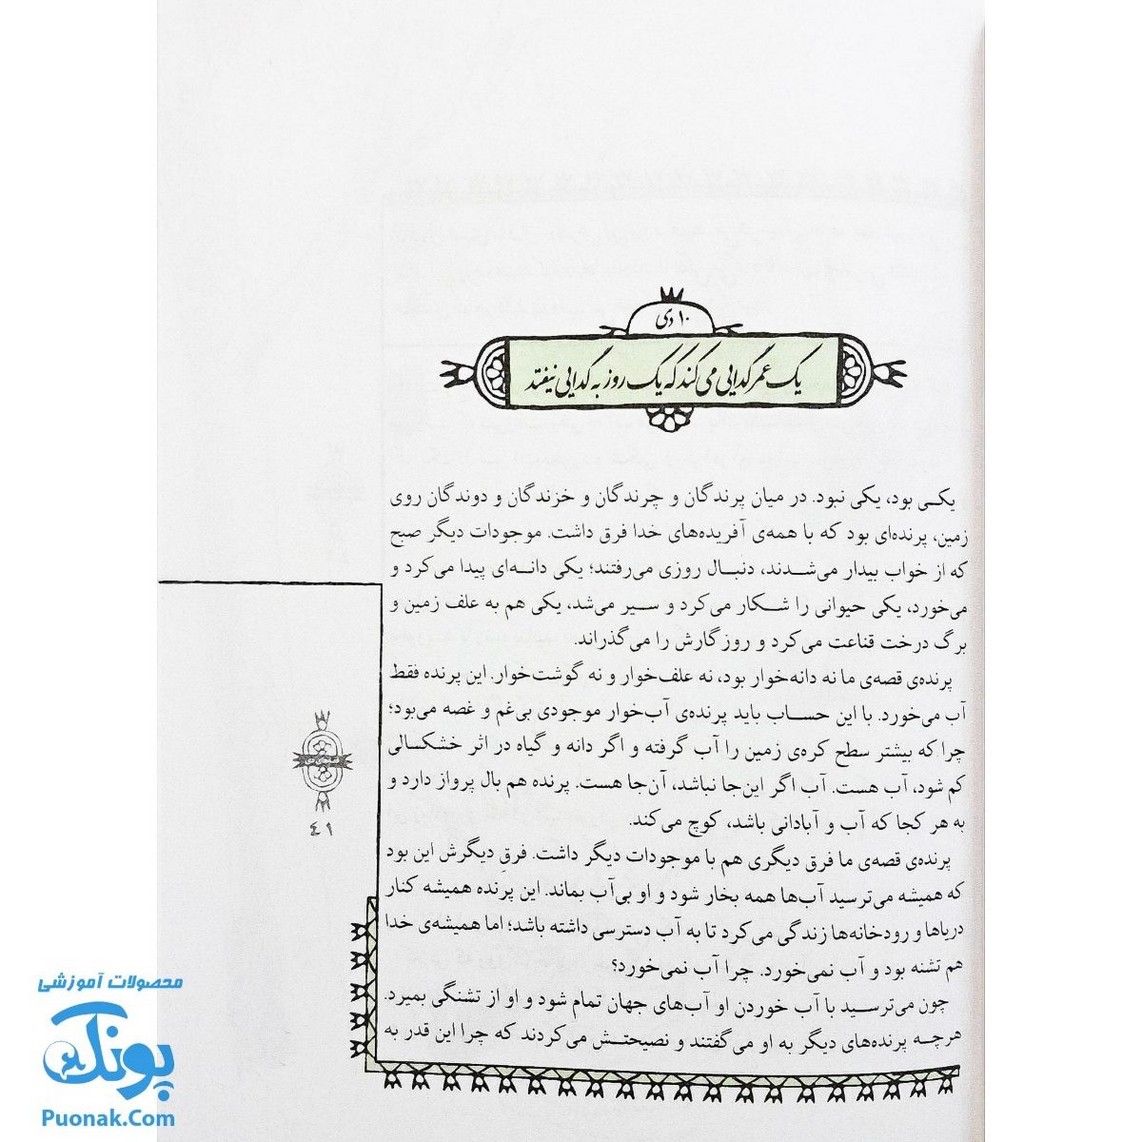 ۱۰ دی
یک عمر گدایی می‌کند که یک روز به گدایی نیفتد
یکـی بود، یکی نبود. در میان پرندگان و چرندگان و خزندگان و دوندگان روی
زمین، پرنده‌ای بود که با همه‌ی آفریده‌های خدا فرق داشت. موجودات دیگر صبح
که از خواب بیدار می‌شـدند، دنبـال روزی می‌رفتند؛ یکی دانـه‌ای پیدا می‌کرد و
می‌خورد، یکی حیوانی را شـکار می‌کرد و سـیر می‌شد، یکی هم به علف زمین و
برگ درخت قناعت می‌کرد و روزگارش را می‌گذراند.
پرنده‌ی قصه‌ی ما نه دانه‌خوار بود، نه علف‌خوار و نه گوشت‌خوار. این پرنده فقط
آب می‌خورد. با این حسـاب باید پرنده‌ی آب‌خوار موجودی بی‌غم و غصه می‌بود؛
چرا که بیشتر سطح کره‌ی زمین را آب گرفته و اگر دانه و گیاه در اثر خشکسالی
کم شود، آب هست. آب اگر این‌جا نباشد، آن‌جا هست. پرنده هم بال پرواز دارد و
به هر کجا که آب و آبادانی باشد، کوچ می‌کند.
پرنده‌ی قصه‌ی ما فرق دیگری هم با موجودات دیگر داشت. فرقِ دیگرش این بود
که همیشه می‌ترسید آب‌ها همه بخار شود و او بی‌آب بماند. این پرنده همیشه کنار
دریاها و رودخانه‌ها زندگی می‌کرد تا به آب دسترسی داشته باشد؛ اما همیشه‌ی خدا
هم تشنه بود و آب نمی‌خورد. چرا آب نمی‌خورد؟
چون می‌ترسـید با آب خوردن او آب‌های جهان تمام شود و او از تشنگی بمیرد.
هرچـه پرنده‌های دیگر به او می‌گفتند و نصیحتـش می‌کردند که چرا این قدر به
۴۱
محصولات آموزشی
پونک
Puonak.Com